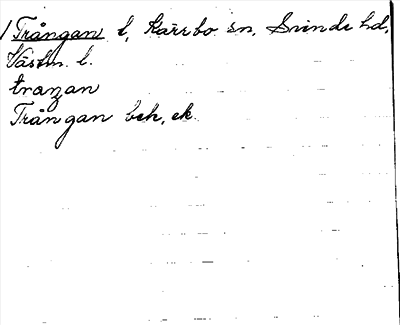 Trångan l, Kärrbo sn, Sninde hd,
Västm. l.
traŋan
Trångan beh, ek.